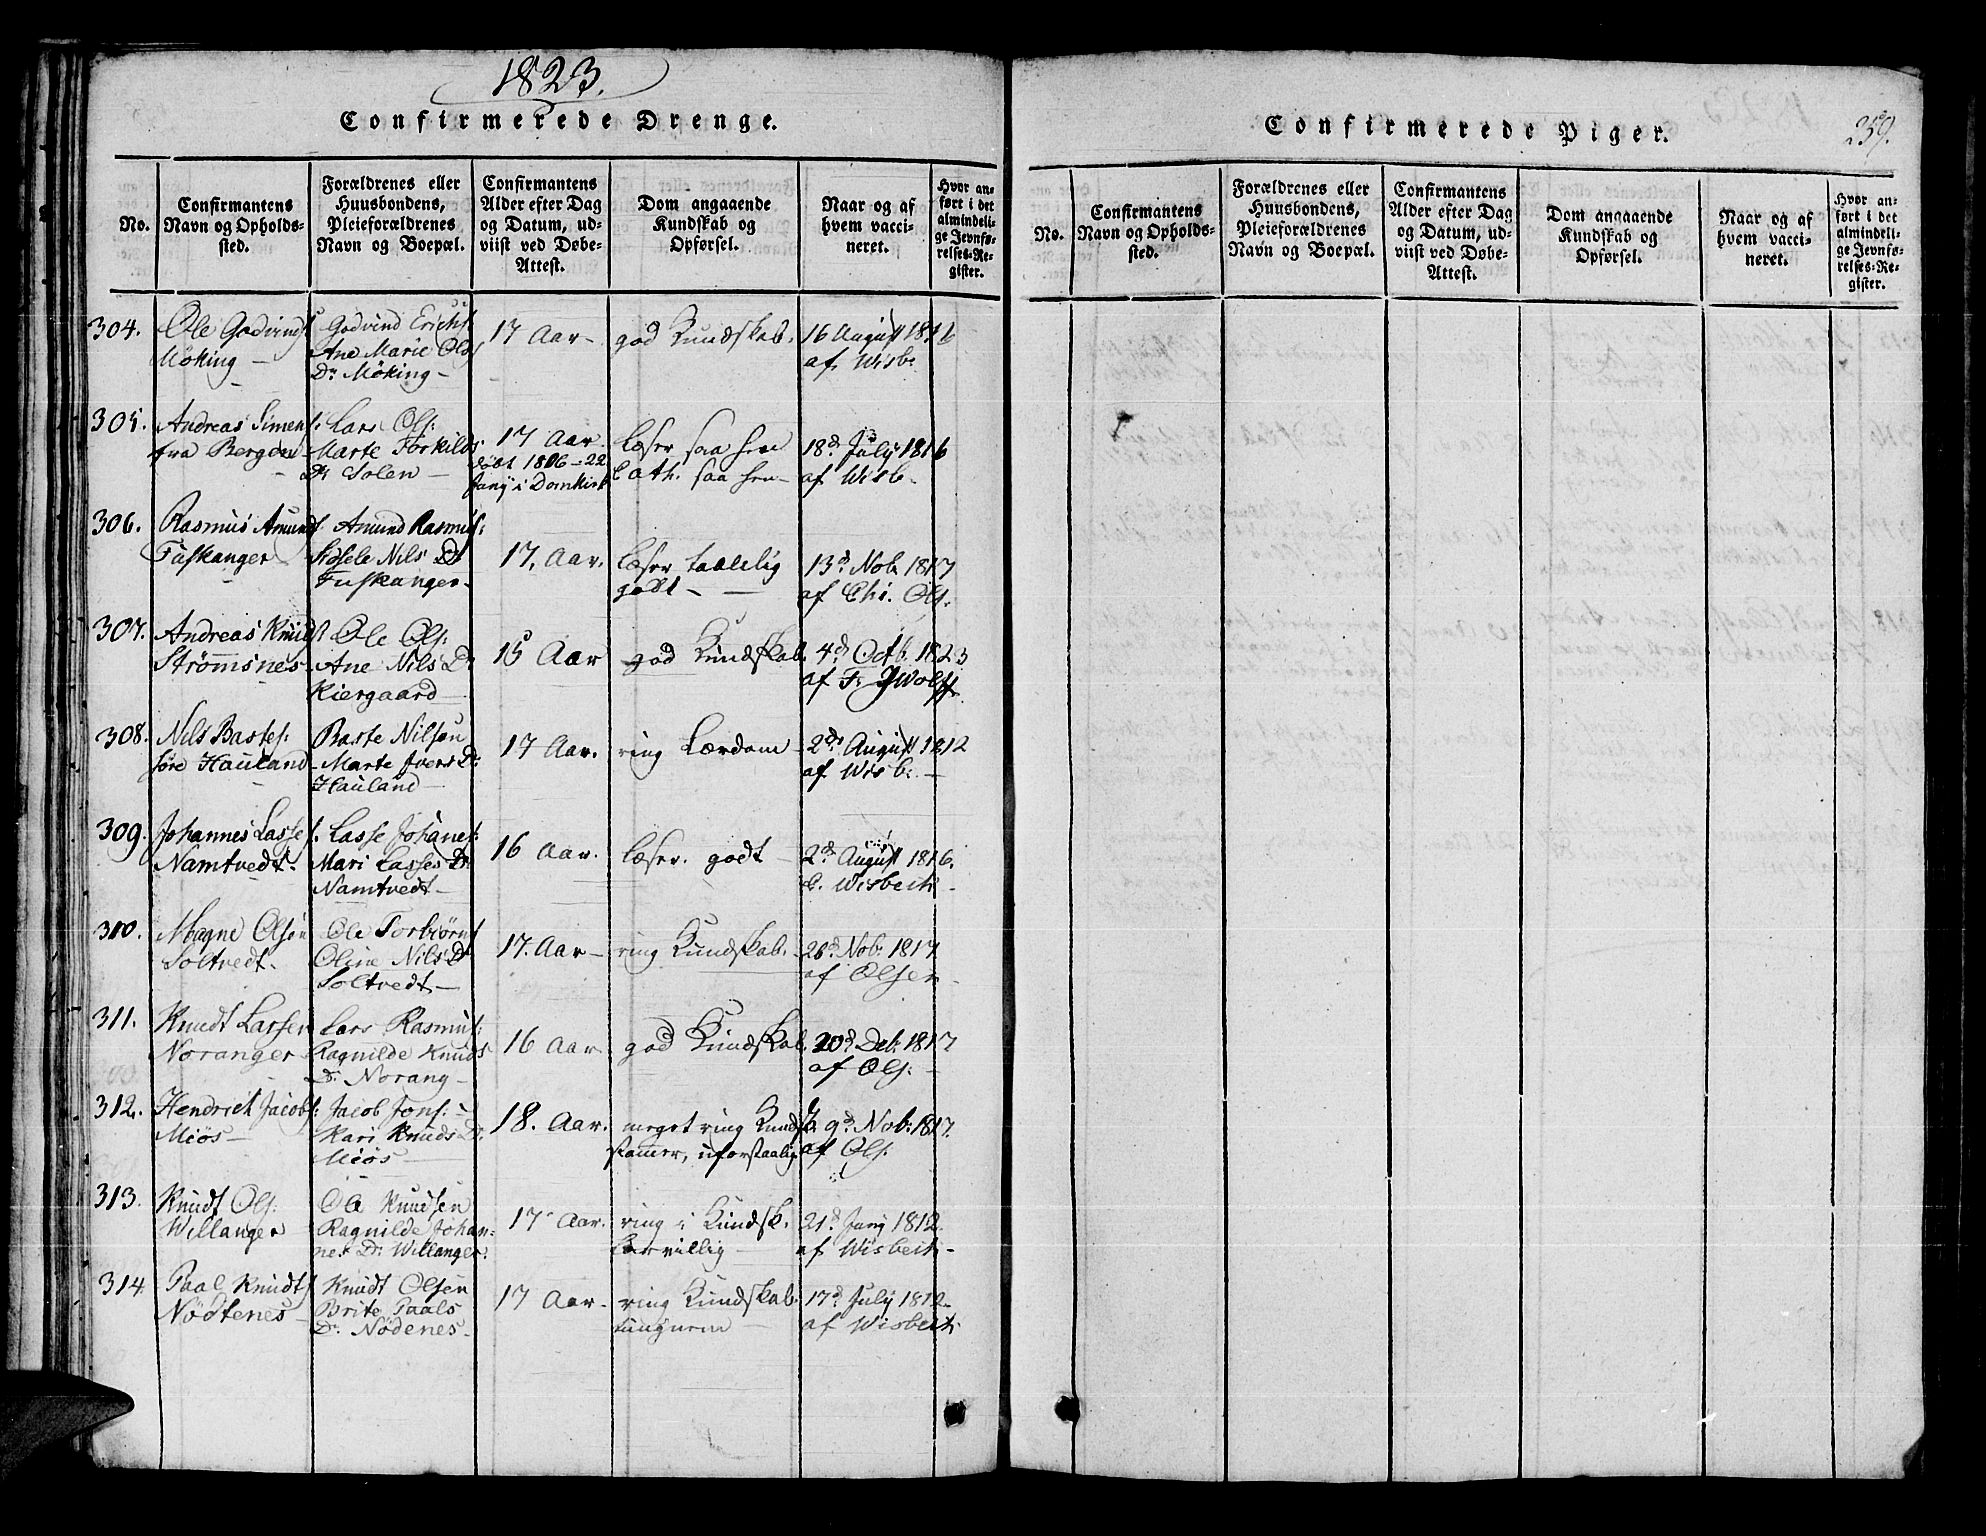 1823.
Confirmerede Drenge.
No.
Confirmantens
Navn og Opholds-
sted.
Forældrenes eller
Huusbondens,
Pleieforældrenes
Navn og Boepæl.
Confirmantens
Alder efter Dag
og Datum, ud-
viist ved Døbe-
Attest.
Dom angaaende
Kundskab og
Opførsel.
Naar og af
hvem vacci-
neret.
Hvor an-
ført i det
almindeli-
ge Jevnfø-
relses-Re-
gister.
304.
Ole Godvinds
Möking -
Godvind Erichs:
Ane Marie Ols
Dr Möking -
17 Aar -
god Kundskab.
16 August 1816
af Wisb:
305.
Andreas Simens:
fra Bergen -
Lars Ols:
Marte Torkilds
Dr Solen -
17 Aar.
födt 1806 - 22
Juny i Domkirk
læser saa hen
Cath. saa hen -
18d July 1816
af Wisb -
306.
Rasmus Amunds.
Fuskanger
Amund Rasmus:
Nils Dr
Fuskanger -
17. Aar.
læser taalelig
godt -
13d Nob. 1817
af Chr. Ols.
307.
Andreas Knuds
Strömsnes -
Ole Ols:
Ane Nils Dr
Kiergaard -
15 Aar
god Kundskab.
4d Octb. 1823
af F. Wolff.
308.
Nils Bastes:
Hauland -
Baste Nilsen
Marte Ivers Dr
Hauland -
17 Aar.
ring Lærdom -
2d August 1812
af Wisb. -
309.
Johannes Lasses.
Namtvedt -
Lasse Johanes:
Mari Lasses Dr
Namtvedt -
16 Aar.
læser. godt -
2d August 1816.
C. Wisbech -
310.
Magne Olsen
Soltvedt -
Ole Torbiörns
Oline Nils Dr
Soltvedt -
17. Aar -
ring Kundskab. -
26d Nob. 1817
af Olsen -
311.
Knudt Larsen
Noranger
Lars Rasmus:
Ragnilde Knuds
Dr Norang -
16 Aar
god Kundskab.
20d Deb. 1817
af Ols: -
312.
Hendrich Jacobs:
Miös -
Jacob Jons: -
Kari Knuds Dr
Miös -
18. Aar.
meget ring Kundsk.
stammer, uforstaalig
9d Nob. 1817.
af Ols:
313.
Knudt Ols:
Willanger
Ole Knudsen
Ragnilde Johan-
nes Dr Willanger.
17 Aar.
ring i Kundsk.
lærvillig -
21d Juny 1812.
af Wisbech -
314
Paal Knudts
Nödtenes -
Knudt Olsen
Brite Paals
Dr Nödenes -
17 Aar -
ring Kundskab.
tungnem -
17d July 1812 -
af Wisbech
Confirmerede Piger.
259.
No.
Confirmantens
Navn og Opholds-
sted.
Forældrenes eller
Huusbondens,
Pleieforældrenes
Navn og Boepæl.
Confirmantens
Alder efter Dag
og Datum, ud-
viist ved Døbe-
Attest.
Dom angaaende
Kundskab og
Opførsel.
Naar og af
hvem vacci-
neret.
Hvor an-
ført i det
almindeli-
ge Jevnfø-
relses-Re-
gister.